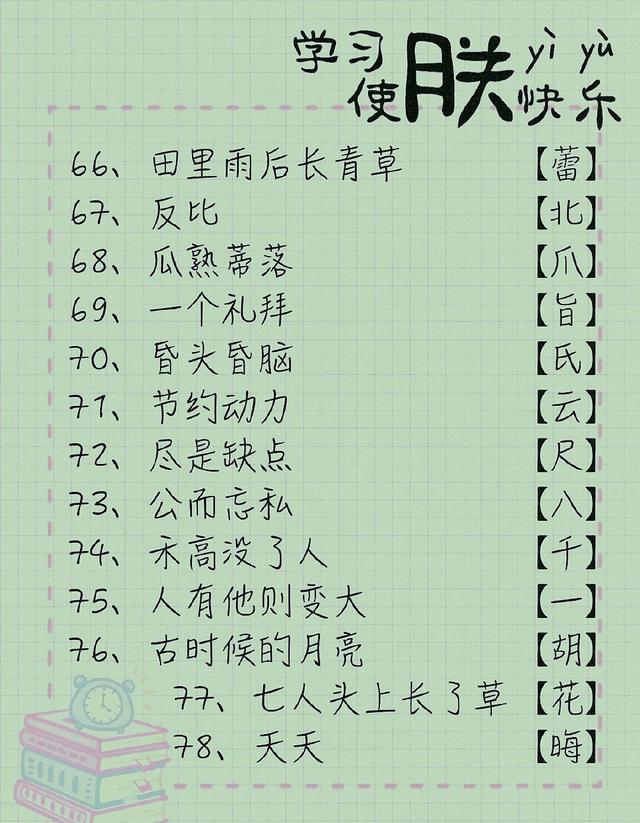 学习 yì yù
使朕快乐
66、田里雨后长青草 【蕾】
67、反比 【北】
68、瓜熟蒂落 【爪】
69、一个礼拜 【旨】
70、昏头昏脑 【氏】
71、节约动力 【云】
72、尽是缺点 【尺】
73、公而忘私 【八】
74、禾高没了人 【千】
75、人有他则变大 【一】
76、古时候的月亮 【胡】
77、七人头上长了草 【花】
78、天天 【晦】